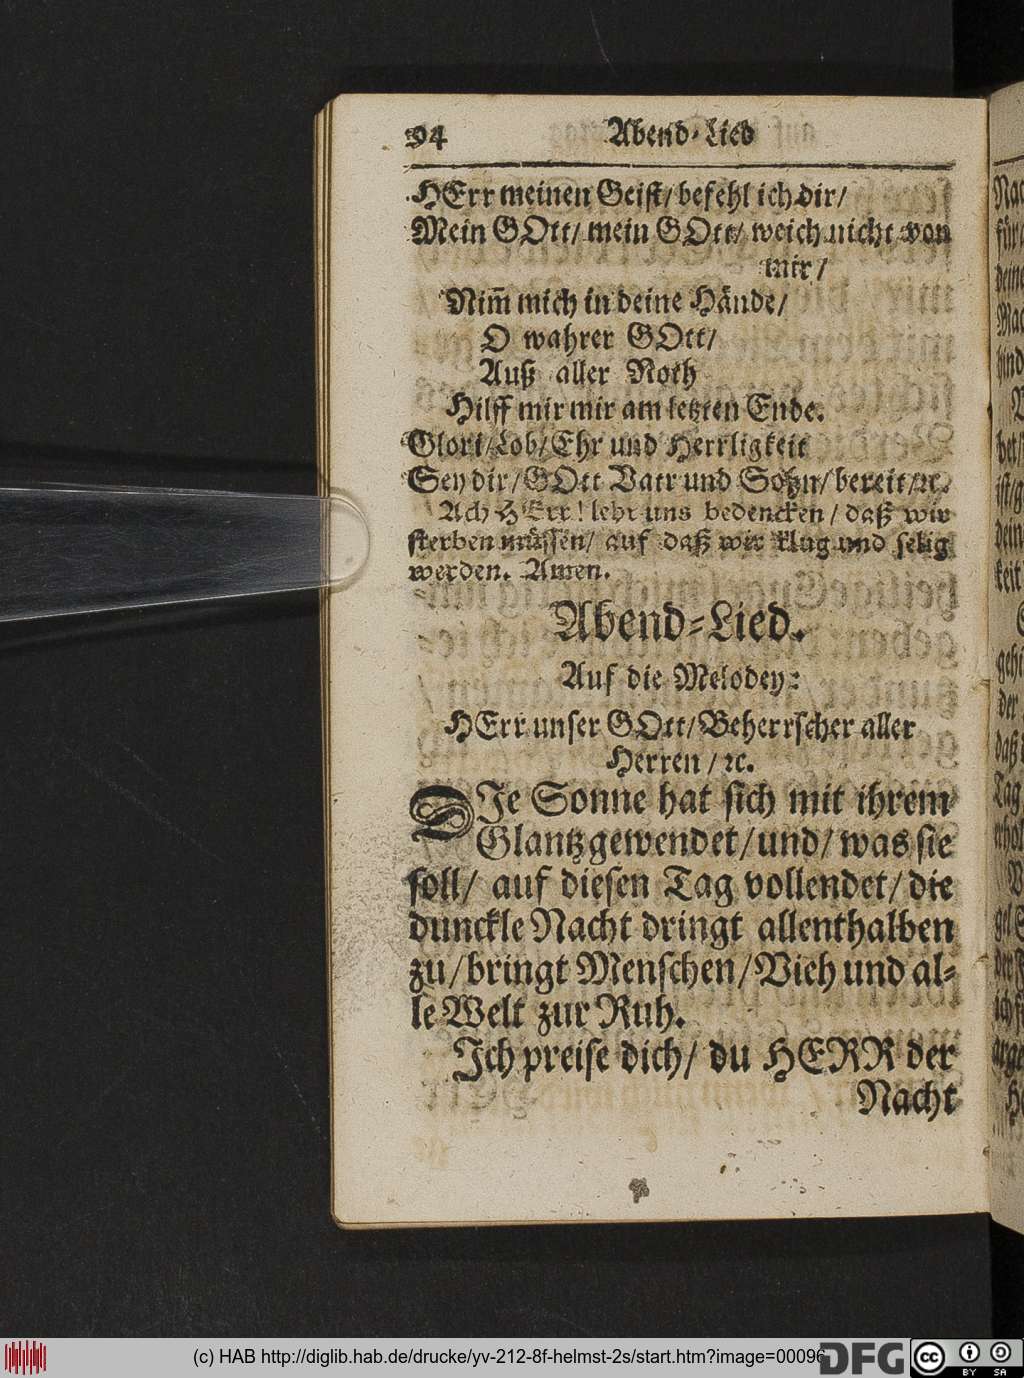 94 Abend-Lied
HErr meinen Geist/ befehl ich dir/
Mein GOtt/ mein GOtt/ weich nicht von
mir/
Nim̃ mich in deine Hände/
O wahrer GOtt/
Auß aller Noth
Hilff mir mir am letzten Ende.
Glori/ Lob/ Ehr und Herrligkeit
Sey dir/ GOtt Vatr und Sohn/ bereit/ ꝛc.
Ach HErr! lehr uns bedencken/ daß wir
sterben müssen/ auf daß wir klug und selig
werden. Amen.
Abend-Lied.
Auf die Melodey:
HErr unser GOtt/ Beherrscher aller
Herren/ ꝛc.
DIe Sonne hat sich mit ihrem
Glantz gewendet/ und/ was sie
soll/ auf diesen Tag vollendet/ die
dunckle Nacht dringt allenthalben
zu/ bringt Menschen/ Vieh und al-
le Welt zur Ruh.
Ich preise dich/ du HERR der
Nacht
(c) HAB http://diglib.hab.de/drucke/yv-212-8f-helmst-2s/start.htm?image=00096
DFG
cc BY SA